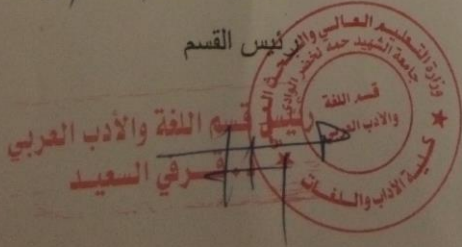 رئيس القسم
وزارة التعليم العالي والبحث العلمي
جامعة الشهيد حمه لخضر الوادي
قسم اللغة
والأدب العربي
كلية الآداب واللغات
رئيس قسم اللغة والأدب العربي
قرفي السعيد